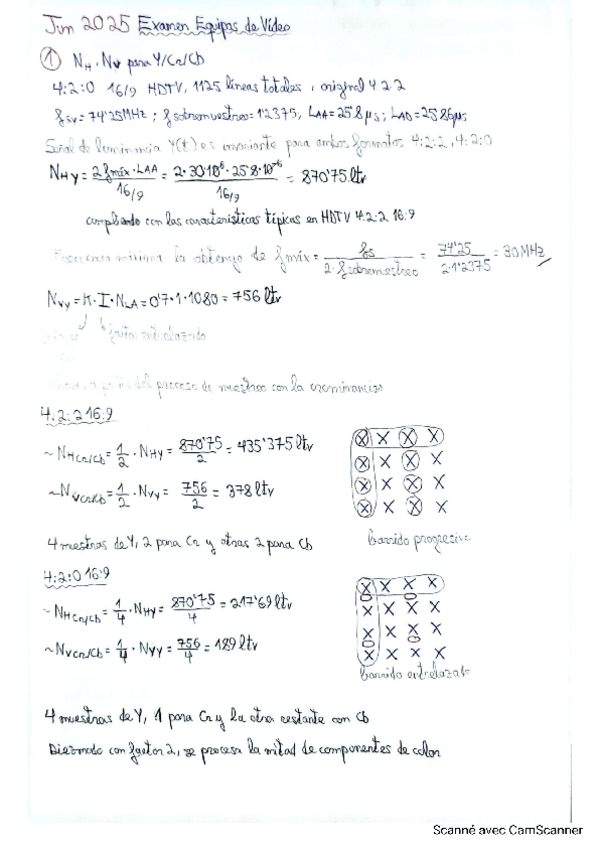 Jun 2025 Examen Equipos de Vídeo
① NH, NV para Y/Cr/Cb
4:2:0 16/9 HDTV, 1125 líneas totales, original 4:2:2
fsy = 74'25MHz; fsobremuestreo = 1'2375, LAA = 25'8µs; LAD = 25'86µs
Señal de luminancia Y(t) es invariante para ambos formatos 4:2:2, 4:2:0
NHY = 2·fmáx·LAA / 16/9 = 2·30·10⁶·25'8·10⁻⁶ / 16/9 = 870'75 ltv
cumpliendo con las características típicas en HDTV 4:2:2 16:9
Frecuencia máxima la obtengo de fmáx = fs / 2·fsobremuestreo = 74'25 / 2·1'2375 = 30MHz
NVY = K·I·NLA = 0'7·1·1080 = 756 ltv
factor entrelazado
del proceso de muestreo con la crominancias
4:2:2 16:9
~ NHCr/Cb = 1/2 · NHY = 870'75 / 2 = 435'375 ltv
~ NVCr/Cb = 1/2 · NVY = 756 / 2 = 378 ltv
4 muestras de Y, 2 para Cr y otras 2 para Cb
barrido progresivo
4:2:0 16:9
~ NHCr/Cb = 1/4 · NHY = 870'75 / 4 = 217'69 ltv
~ NVCr/Cb = 1/4 · NVY = 756 / 4 = 189 ltv
barrido entrelazado
4 muestras de Y, 1 para Cr y la otra restante con Cb
Diezmado con factor 2, se procesa la mitad de componentes de color
Scanné avec CamScanner